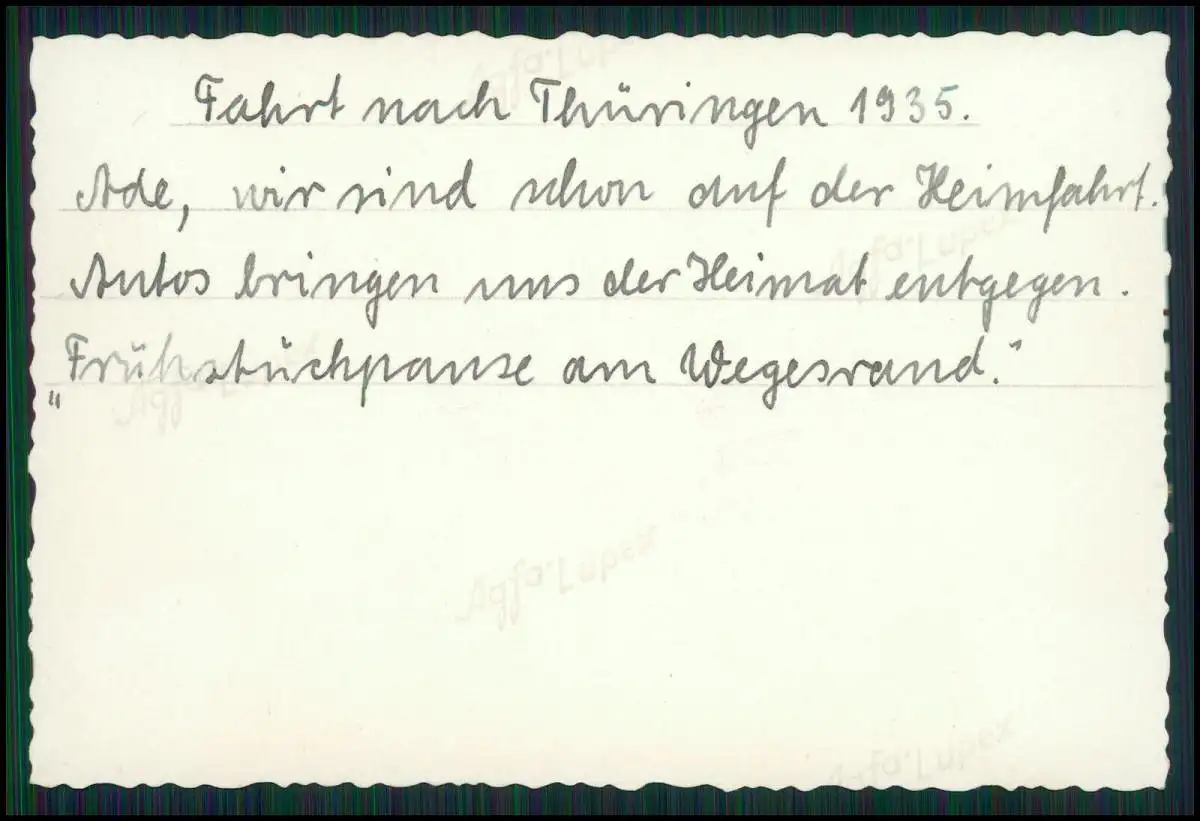 Fahrt nach Thüringen 1935.
Ade, wir sind schon auf der Heimfahrt.
Autos bringen uns der Heimat entgegen.
„Frühstückpause am Wegesrand."
Agfa-Lupex
Agfa-Lupex
Agfa-Lupex
Agfa-Lupex
Agfa-Lupex